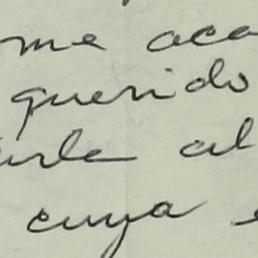 me aca
querido
arla al
cuya e